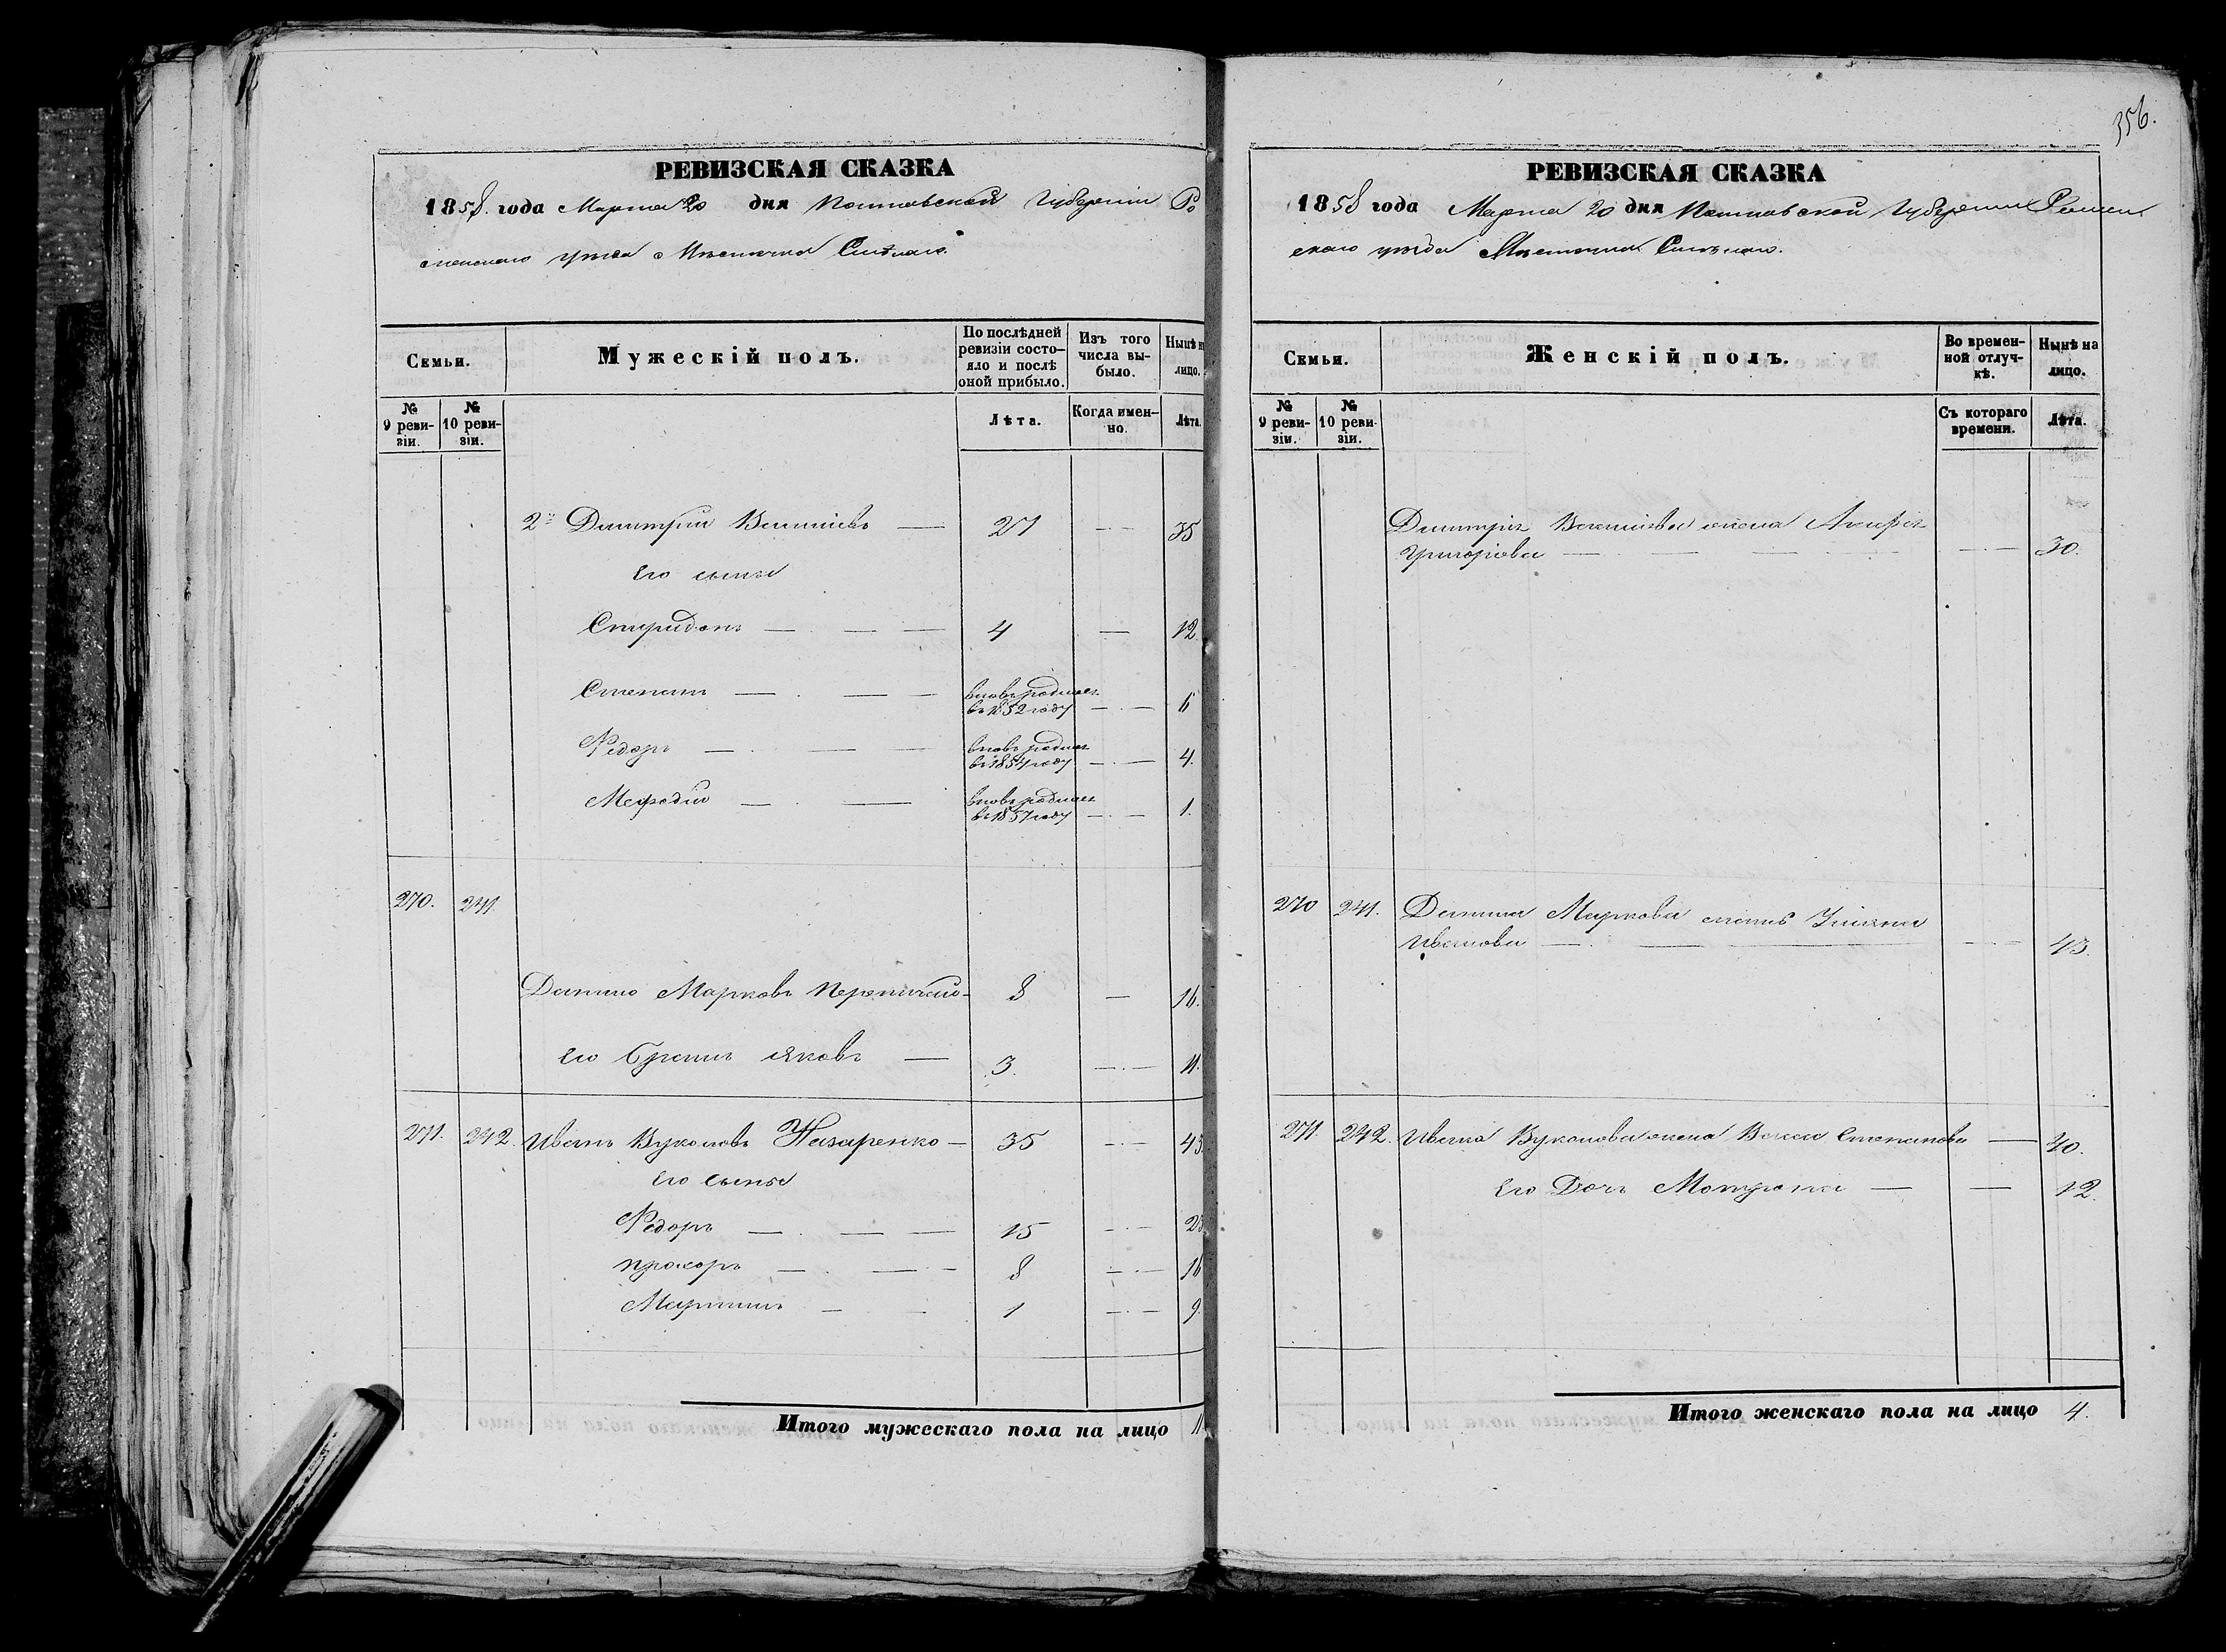 356.
РЕВИЗСКАЯ СКАЗКА
1858. года Марта 20 дня Полтавской Губерніи Ро
менскаго уѣзда Мѣстечка Смѣлаго.
Семьи.
Мужескій полъ.
По послѣдней ревизіи состо-
яло и послѣ оной прибыло.
Изъ того числа вы-
было.
Нынѣ н
лицо.
№ 9 реви-
зіи.
№ 10 реви-
зіи.
Лѣта.
Когда имен-
но.
Лѣта.
2й Дмитрій — 27 — 35
Его сынья
Спиридонъ — 4 — 12.
Степанъ — вновь рожден
въ 1852 году — 6
Федоръ — вновь рожден
въ 1854 году — 4.
Мефодій — вновь рожден
въ 1857 году — 1.
270. 241.
Данило Марковъ — 8 — 16.
Его Братъ Яковъ — 3. — 11.
271. 242. Иванъ Вуколовъ Назаренко — 35 — 43.
Его Сынья
Федоръ — 15 — 23
Прохоръ — 8 — 16
Мартинъ — 1 — 9.
Итого мужескаго пола на лицо 11
РЕВИЗСКАЯ СКАЗКА
1858 года Марта 20 дня Полтавской Губерніи Ромен
скаго уѣзда Мѣстечка Смѣлаго.
Семьи.
Женскій полъ.
Во времен-
ной отлуч-
кѣ.
Нынѣ на
лицо.
№ 9 реви-
зіи.
№ 10 реви-
зіи.
Съ котораго
времени.
Лѣта.
Дмитрія жена
Григорьева — 30.
270 241. Данила Маркова мать Ульяна
Иванова — 43.
271. 242. Ивана Вуколова жена Степанова — 40.
Его Дочь Мотрона — 12.
Итого женскаго пола на лицо 4.